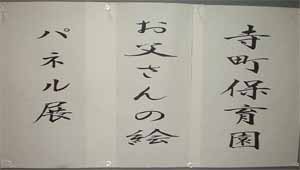 寺町保育園
お父さんの絵
パネル展